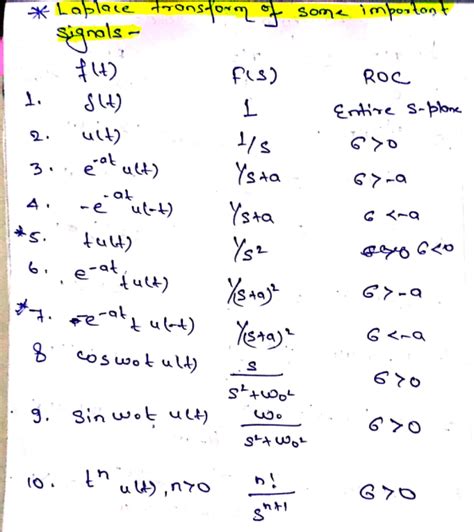 * Laplace transform of some important
signals -
f(t) F(s) ROC
1. δ(t) 1 Entire s-plane
2. u(t) 1/s σ>0
3. e^-at u(t) 1/s+a σ>-a
4. -e^-at u(-t) 1/s+a σ<-a
*5. tu(t) 1/s² σ<0
6. e^-at t u(t) 1/(s+a)² σ>-a
*7. -e^-at t u(-t) 1/(s+a)² σ<-a
8 cosω₀t u(t) s/s²+ω₀² σ>0
9. sinω₀t u(t) ω₀/s²+ω₀² σ>0
10. t^n u(t), n>0 n!/s^n+1 σ>0